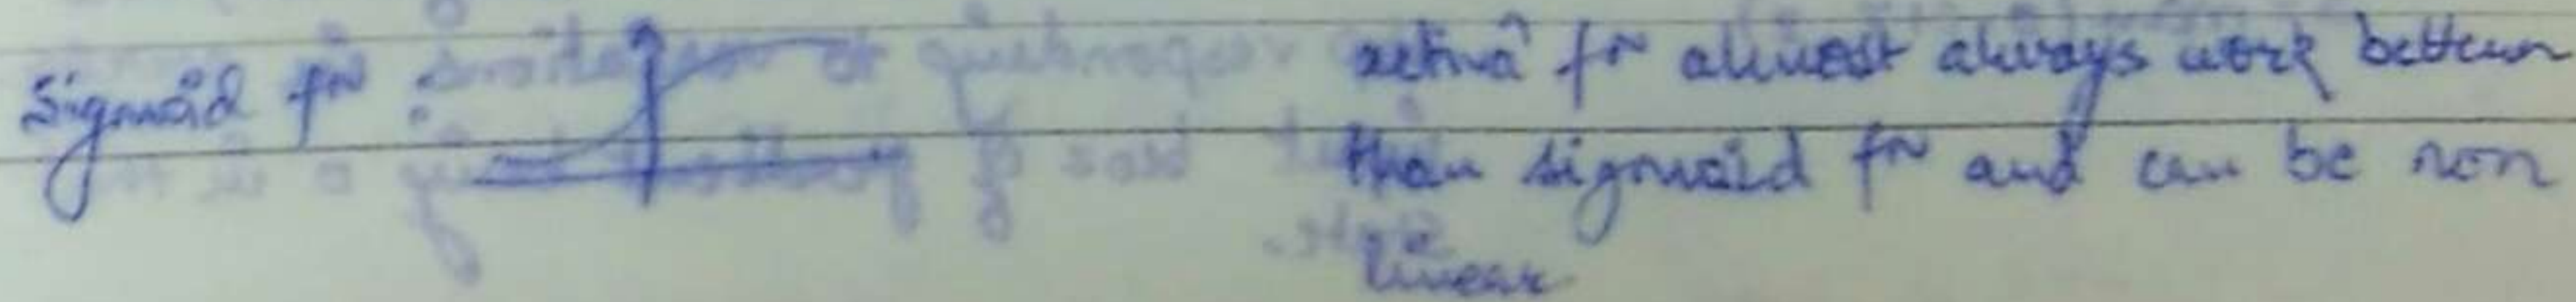 Sigmoid fn :
activaⁿ fn almost always work better
than sigmoid fn and can be non
linear